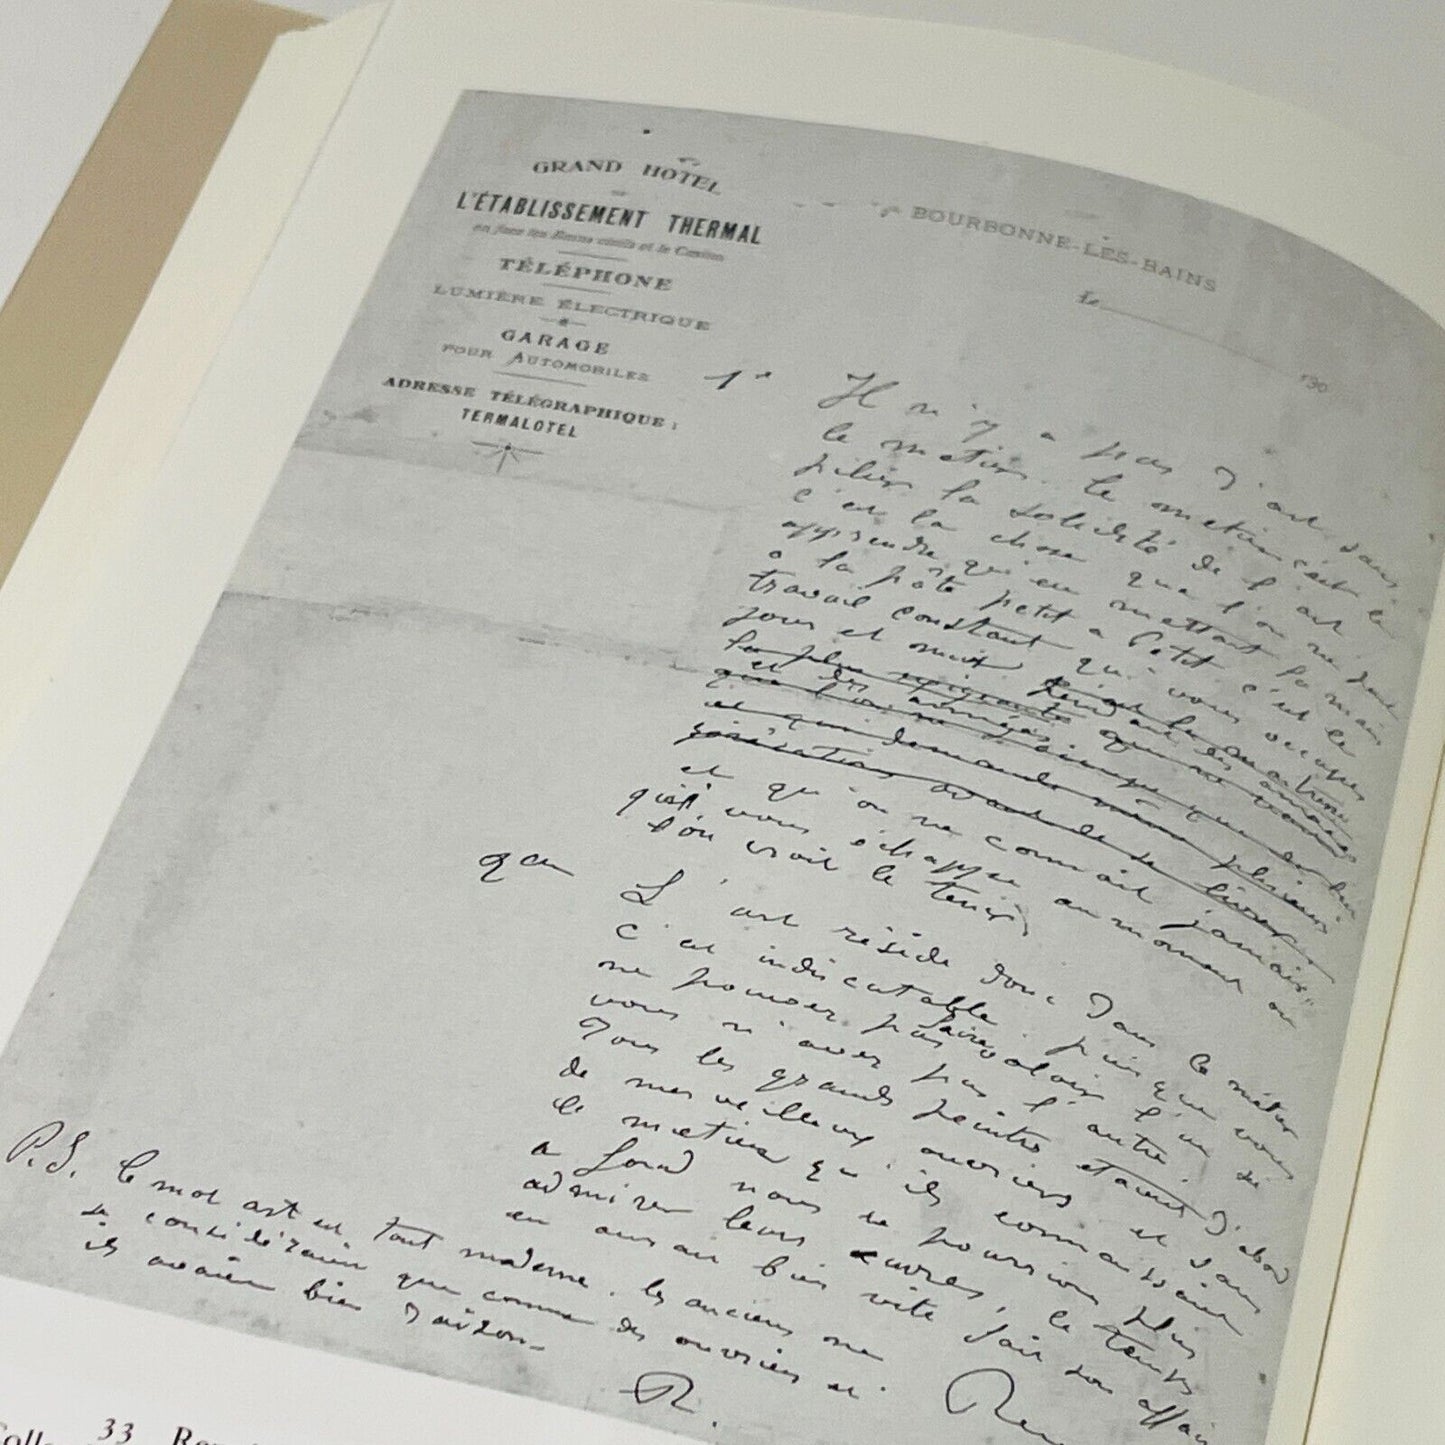 GRAND HOTEL
DE
L'ÉTABLISSEMENT THERMAL
en face les Bains civils et le Casino
TÉLÉPHONE
LUMIÈRE ÉLECTRIQUE
GARAGE
POUR AUTOMOBILES
ADRESSE TÉLÉGRAPHIQUE :
TERMALOTEL
BOURBONNE-LES-BAINS
le
190
1º
Il n'y a pas d'art sans
le métier. le métier c'est le
pilier la solidité de l'art
c'est la chose que l'on ne peut
apprendre qu'en mettant la main
a la pâte petit a petit c'est le
travail constant qui vous occupe
jour et nuit
et qu'on ne connait jamais
qui vous échappe au moment où
l'on croit le tenir
L'art réside donc dans le métier
c'est indiscutable. puisque vous
ne pouvez pas faire valoir l'un si
vous n'avez pas l'autre.
Tous les grands peintres etaient d'abord
de merveilleux ouvriers et sans
le metier qu'ils connaissaient
a fond nous ne pourrions plus
admirer leurs œuvres, le temps
en aurait bien vite fait son affaire
P.S. le mot art est tout moderne. les anciens ne
se considéraient que comme des ouvriers et
ils avaient bien raison
R.
33